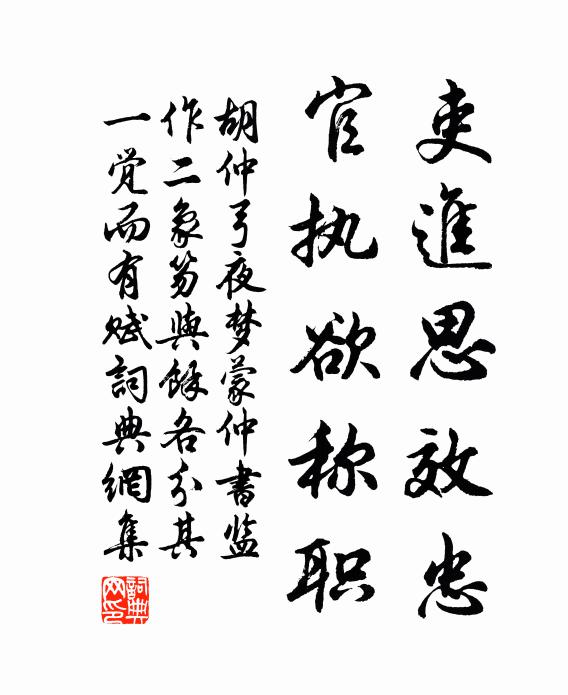 吏進思效忠
官执欲称职
胡仲弓夜梦蒙仲書监
作二象笏與餘各分其
一觉而有赋詞典網集
詞典網印